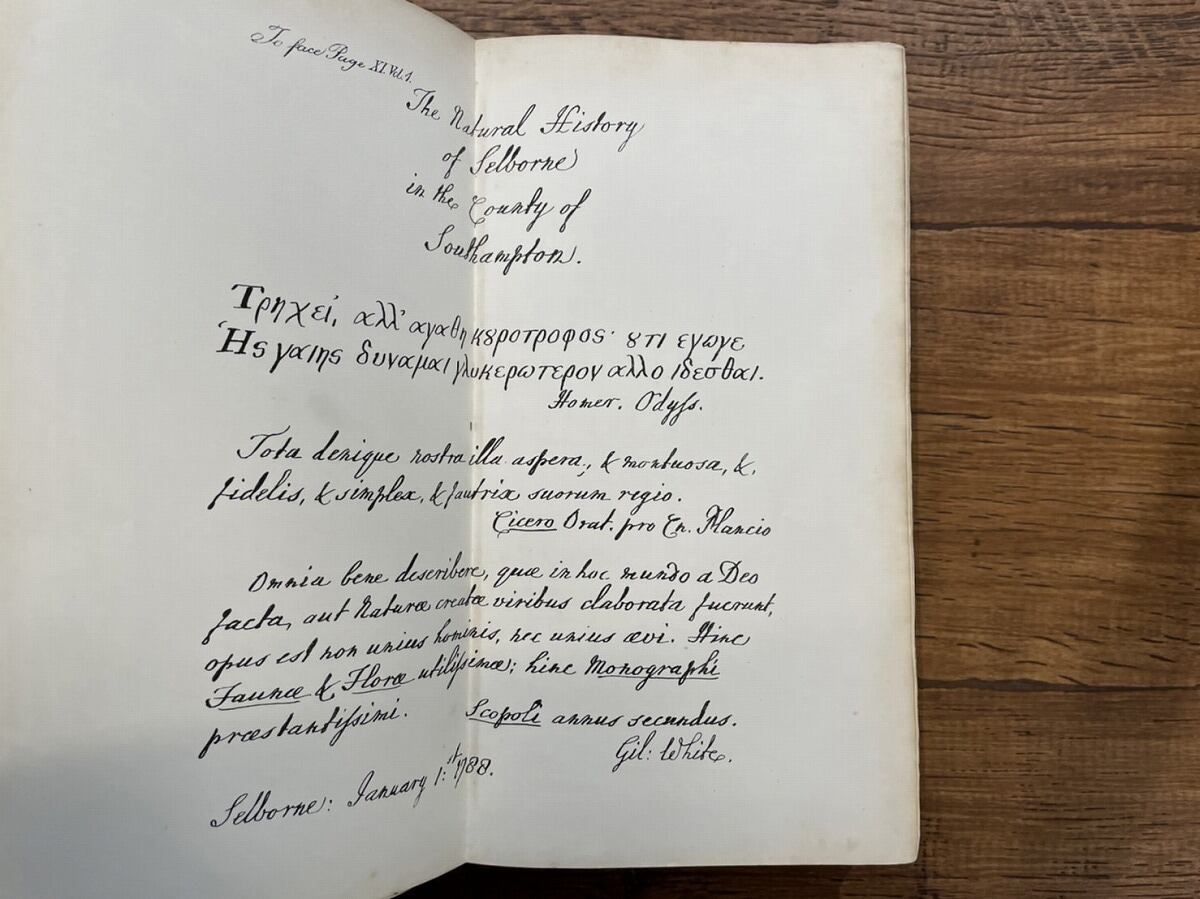 To face Page XI. Vol. 1.
The Natural History
of Selborne
in the County of
Southampton.
Τρηχεί, αλλ' αγαθη κȣροτροφος· ȣτι εγωγε
Ἡς γαιης δυναμαι γλυκερωτερον αλλο ιδεσθαι.
Homer. Odyſs.
Tota denique nostra illa aspera, & montuosa, &,
fidelis, & simplex, & fautrix suorum regio.
Cicero Orat. pro Cn. Plancio
Omnia bene describere, quæ in hoc mundo a Deo
facta, aut Naturæ creatæ viribus elaborata fuerunt,
opus est non unius hominis, nec unius ævi. Hinc
Faunæ & Floræ utiliſsimæ; hinc Monographi
præstantiſsimi.
Scopoli annus secundus.
Gil: White.
Selborne: January 1:st 1788.